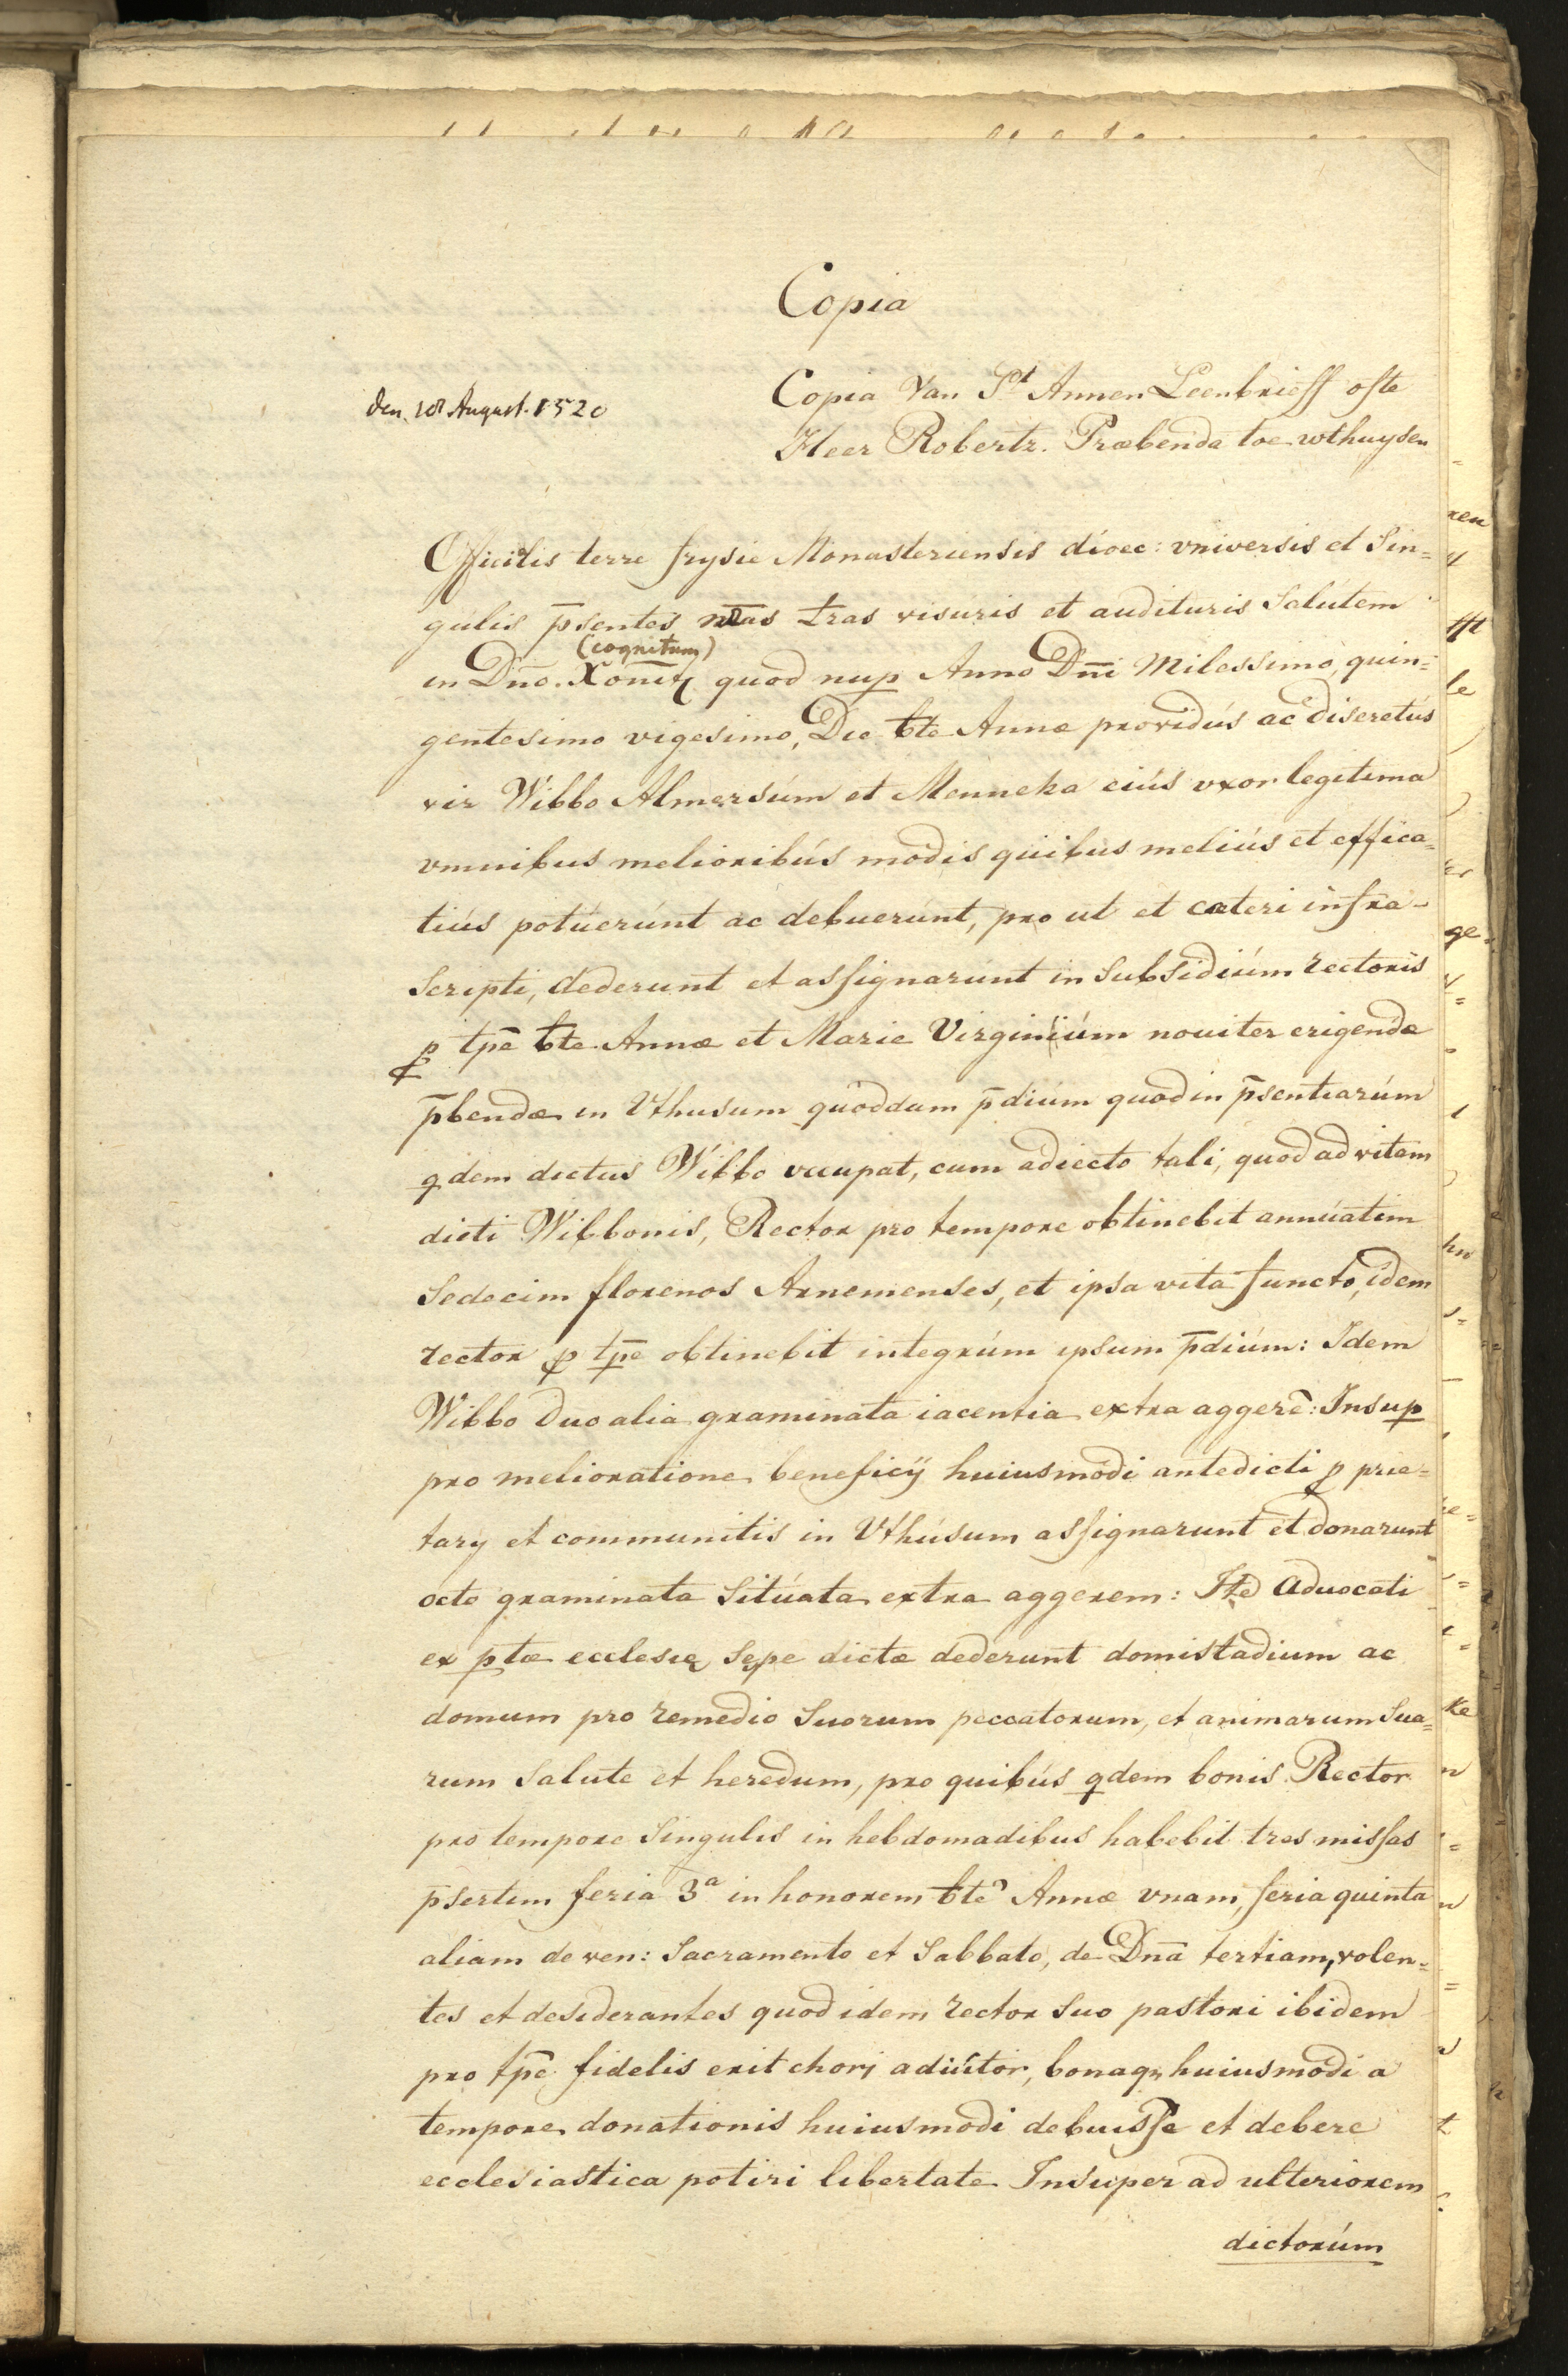 Copia
Copia Van St Annen Leenbrieff ofte
Heer Robertz. Præbenda toe wthuysen
den 18 August. 1520
Officiłis terre frysie Monasteriensis dioec: vniversis et Sin=
gúlis p̄sentes nr̄as łras visuris et audituris Salútem
(cognitum)
in Dn̄o. quod nup Anno Dn̄i Milessimo, quin=
gentesimo vigesimo, Die bte Annæ providús ac discretús
vir Wibbo Almersúm et Menneka eiús vxor legitima
vmnibus melioribús modis quibus meliús et effica=
tiús potúerúnt ac debuerúnt, pro ut et cæteri infra=
scripti, dederunt et assignarúnt in Subsidiúm rectoris
p tp̄e bte Annæ et Marie Virginiúm nouiter erigendæ
p̄bendæ in Vthusum quoddam p̄diúm quod in p̄sentiarúm
qdem dictus Wibbo vccupat, cum adiecto tali, quod ad vitam
dicti Wibbonis, Rector pro tempore obtinebit annúatim
Sedecim florenos Arnemenses, et ipsa vita functo, idem
rector p tp̄e obtinebit integrúm ipsum p̄diúm: Idem
Wibbo duo alia graminata iacentia extra aggerē: Insup
pro melioratione beneficÿ huiusmodi antedicti p prie=
tarÿ et communitis in Vthúsum assignarunt et donarunt
octo graminata Sitúata extra aggerem: Itē Aduocati
ex ptæ ecclesię sepe dictæ dederunt domistadium ac
domum pro remedio Suorum peccatorum, et animarum Sua=
rum Salute et heredum, pro quibús qdem bonis Rector
pro tempore Singulis in hebdomadibus habebit tres missas
p̄sertim feria 3a in honorem bte Annæ vnam, feria quinta
aliam de ven: Sacramento et Sabbato, de Dn̄a tertiam, volen=
tes et desiderantes quod idem rector Suo pastori ibidem
pro tp̄e fidelis erit chorj adiútor, bonaqꝫ huiusmodi a
tempore donationis huiusmodi debuisse et debere
ecclesiastica potiri libertate Insuper ad ulteriorem
dictorúm